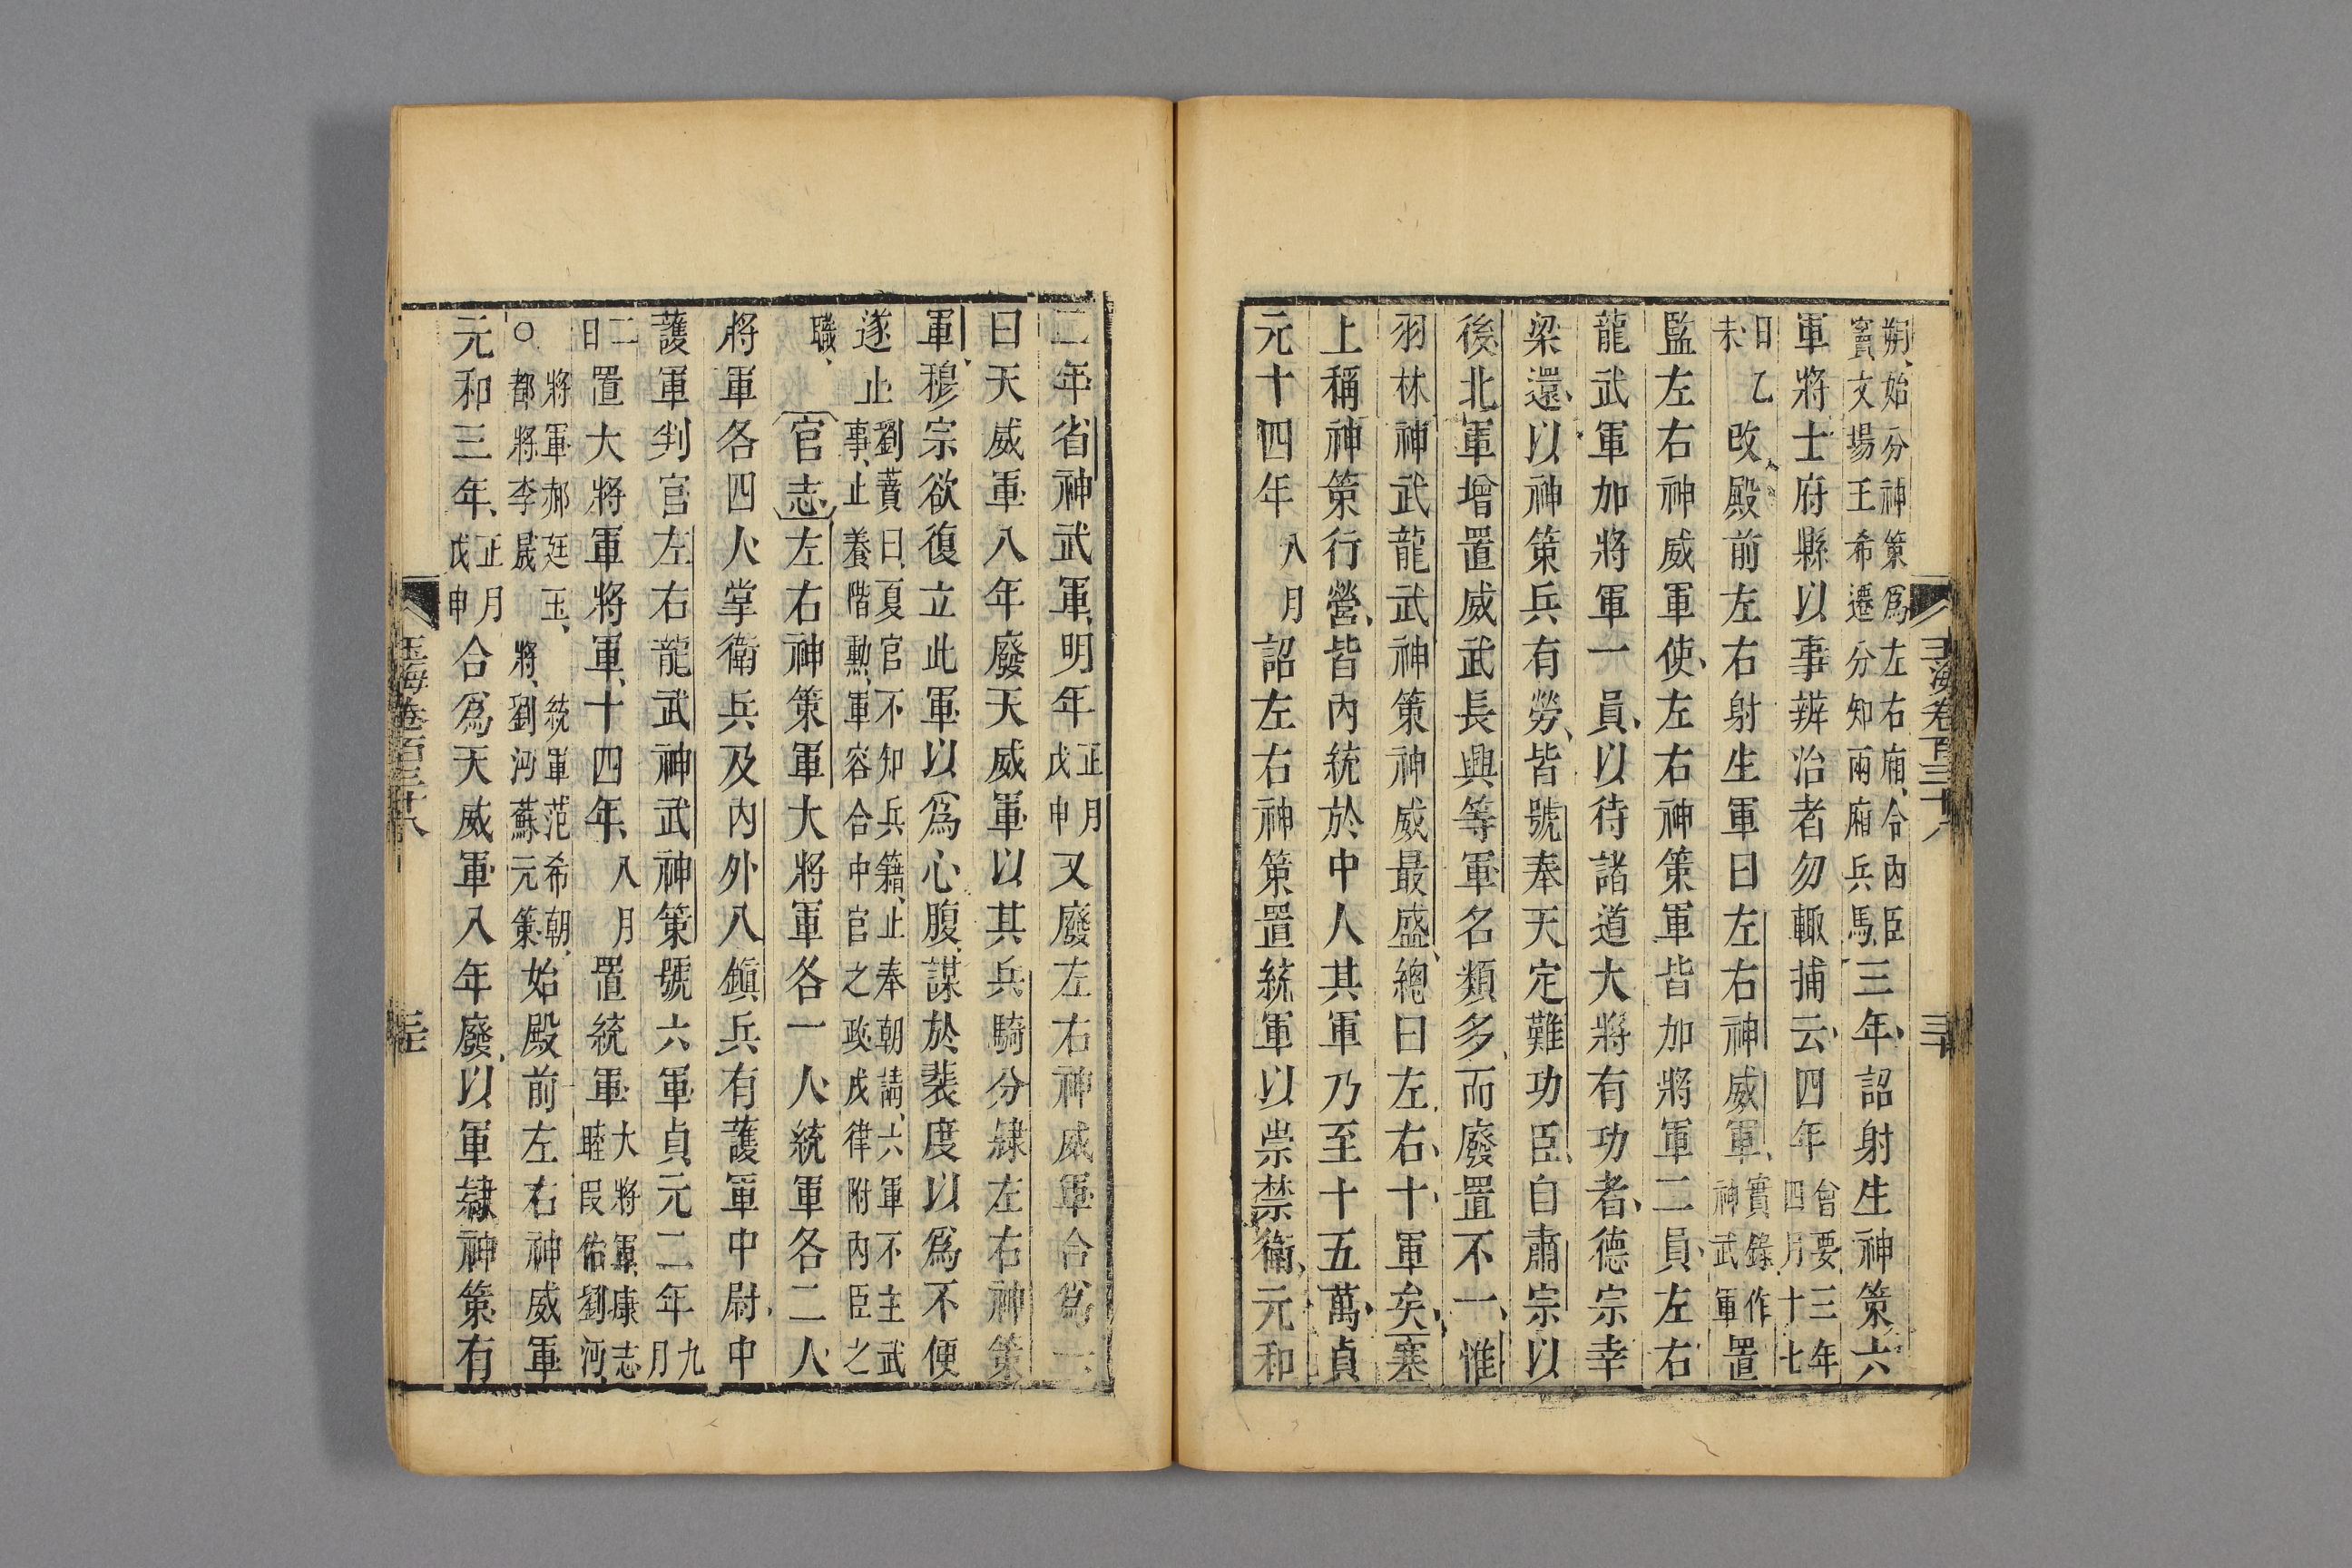 朔始分神策爲左右廂合內臣竇文場王希遷分知兩廂兵馬三年詔射生神策六
軍將士府縣以事辨治者勿輙捕云四年會要三年四月十七
日乙未改殿前左右射生軍曰左右神威軍實錄作神武軍置
監左右神威軍使左右神策軍皆加將軍二員左右
龍武軍加將軍一員以待諸道大將有功者德宗幸
梁還以神策兵有勞皆號奉天定難功臣自肅宗以
後北軍增置威武長興等軍名類多而廢置不一惟
羽林神武龍武神策神威最盛總曰左右十軍矣塞
上稱神策行營皆內統於中人其軍乃至十五萬貞
元十四年八月詔左右神策置統軍以崇禁衛元和
二年省神武軍明年正月戊申又廢左右神威軍合爲一
曰天威軍八年廢天威軍以其兵騎分隸左右神策
軍穆宗欲復立此軍以爲心腹謀於裴度以爲不便
遂止劉蕡曰夏官不知兵籍止奉朝請六軍不主武事止養階勳軍容合中官之政戎律附內臣之
職官志左右神策軍大將軍各一人統軍各二人
將軍各四人掌衛兵及內外八鎭兵有護軍中尉中
護軍判官左右龍武神武神策號六軍貞元二年九月
二日置大將軍將軍十四年八月置統軍大將軍康志睦叚佑劉沔
○將軍郝廷玉統軍范希朝都將李晟將劉沔蘇元策始殿前左右神威軍
元和三年正月戊申合爲天威軍入年廢以軍隸神策有
玉海卷百三十八
三十
玉海卷百三十八